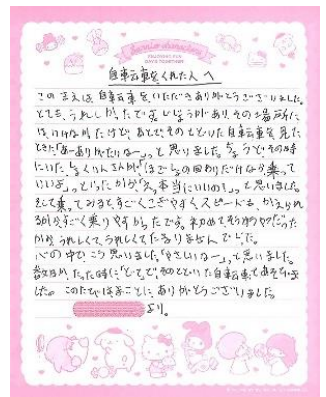 自転車をくれた人へ
この言えは、自転車を、いただきありがとうございました。
とても、うれしかったです。じじょうがあり、その場所に
は、いけなかったけど、あとでそのとどいた自転車を見た
ときに「あーありがたいなー」っと思いました。ちょうどその時
にいた、くんさんが「ほごしゃの回りだけなら乗って
いいよ。」といったから「え、本当にいいの!」っと思いました。
そして乗ってみるとすごくこぎやすくスピードも、かえられ
るからすごく乗りやすかったです。初めてそうゆうやつだった
から、うれしくってうれしくてたまりませんでした。
心の中で、こう思いました。「やさしいなー」っと思いました。
数日が、たった時に、そのとどいた自転車であそびま
した。このたびはまことに、ありがとうございました。
より。